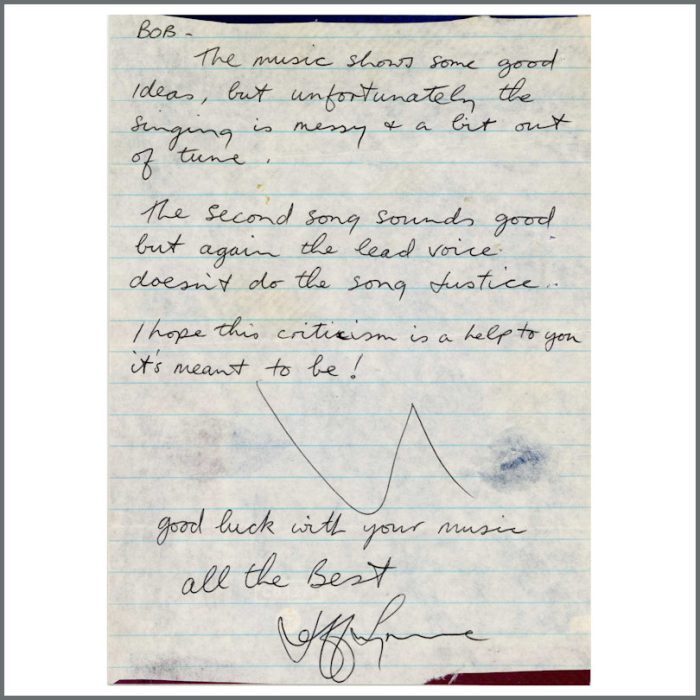 BOB -
The music shows some good
ideas, but unfortunately the
singing is messy & a bit out
of tune.
The second song sounds good
but again the lead voice
doesn't do the song Justice..
I hope this criticism is a help to you
it's meant to be!
good luck with your music
all the Best
Jeff Lynne